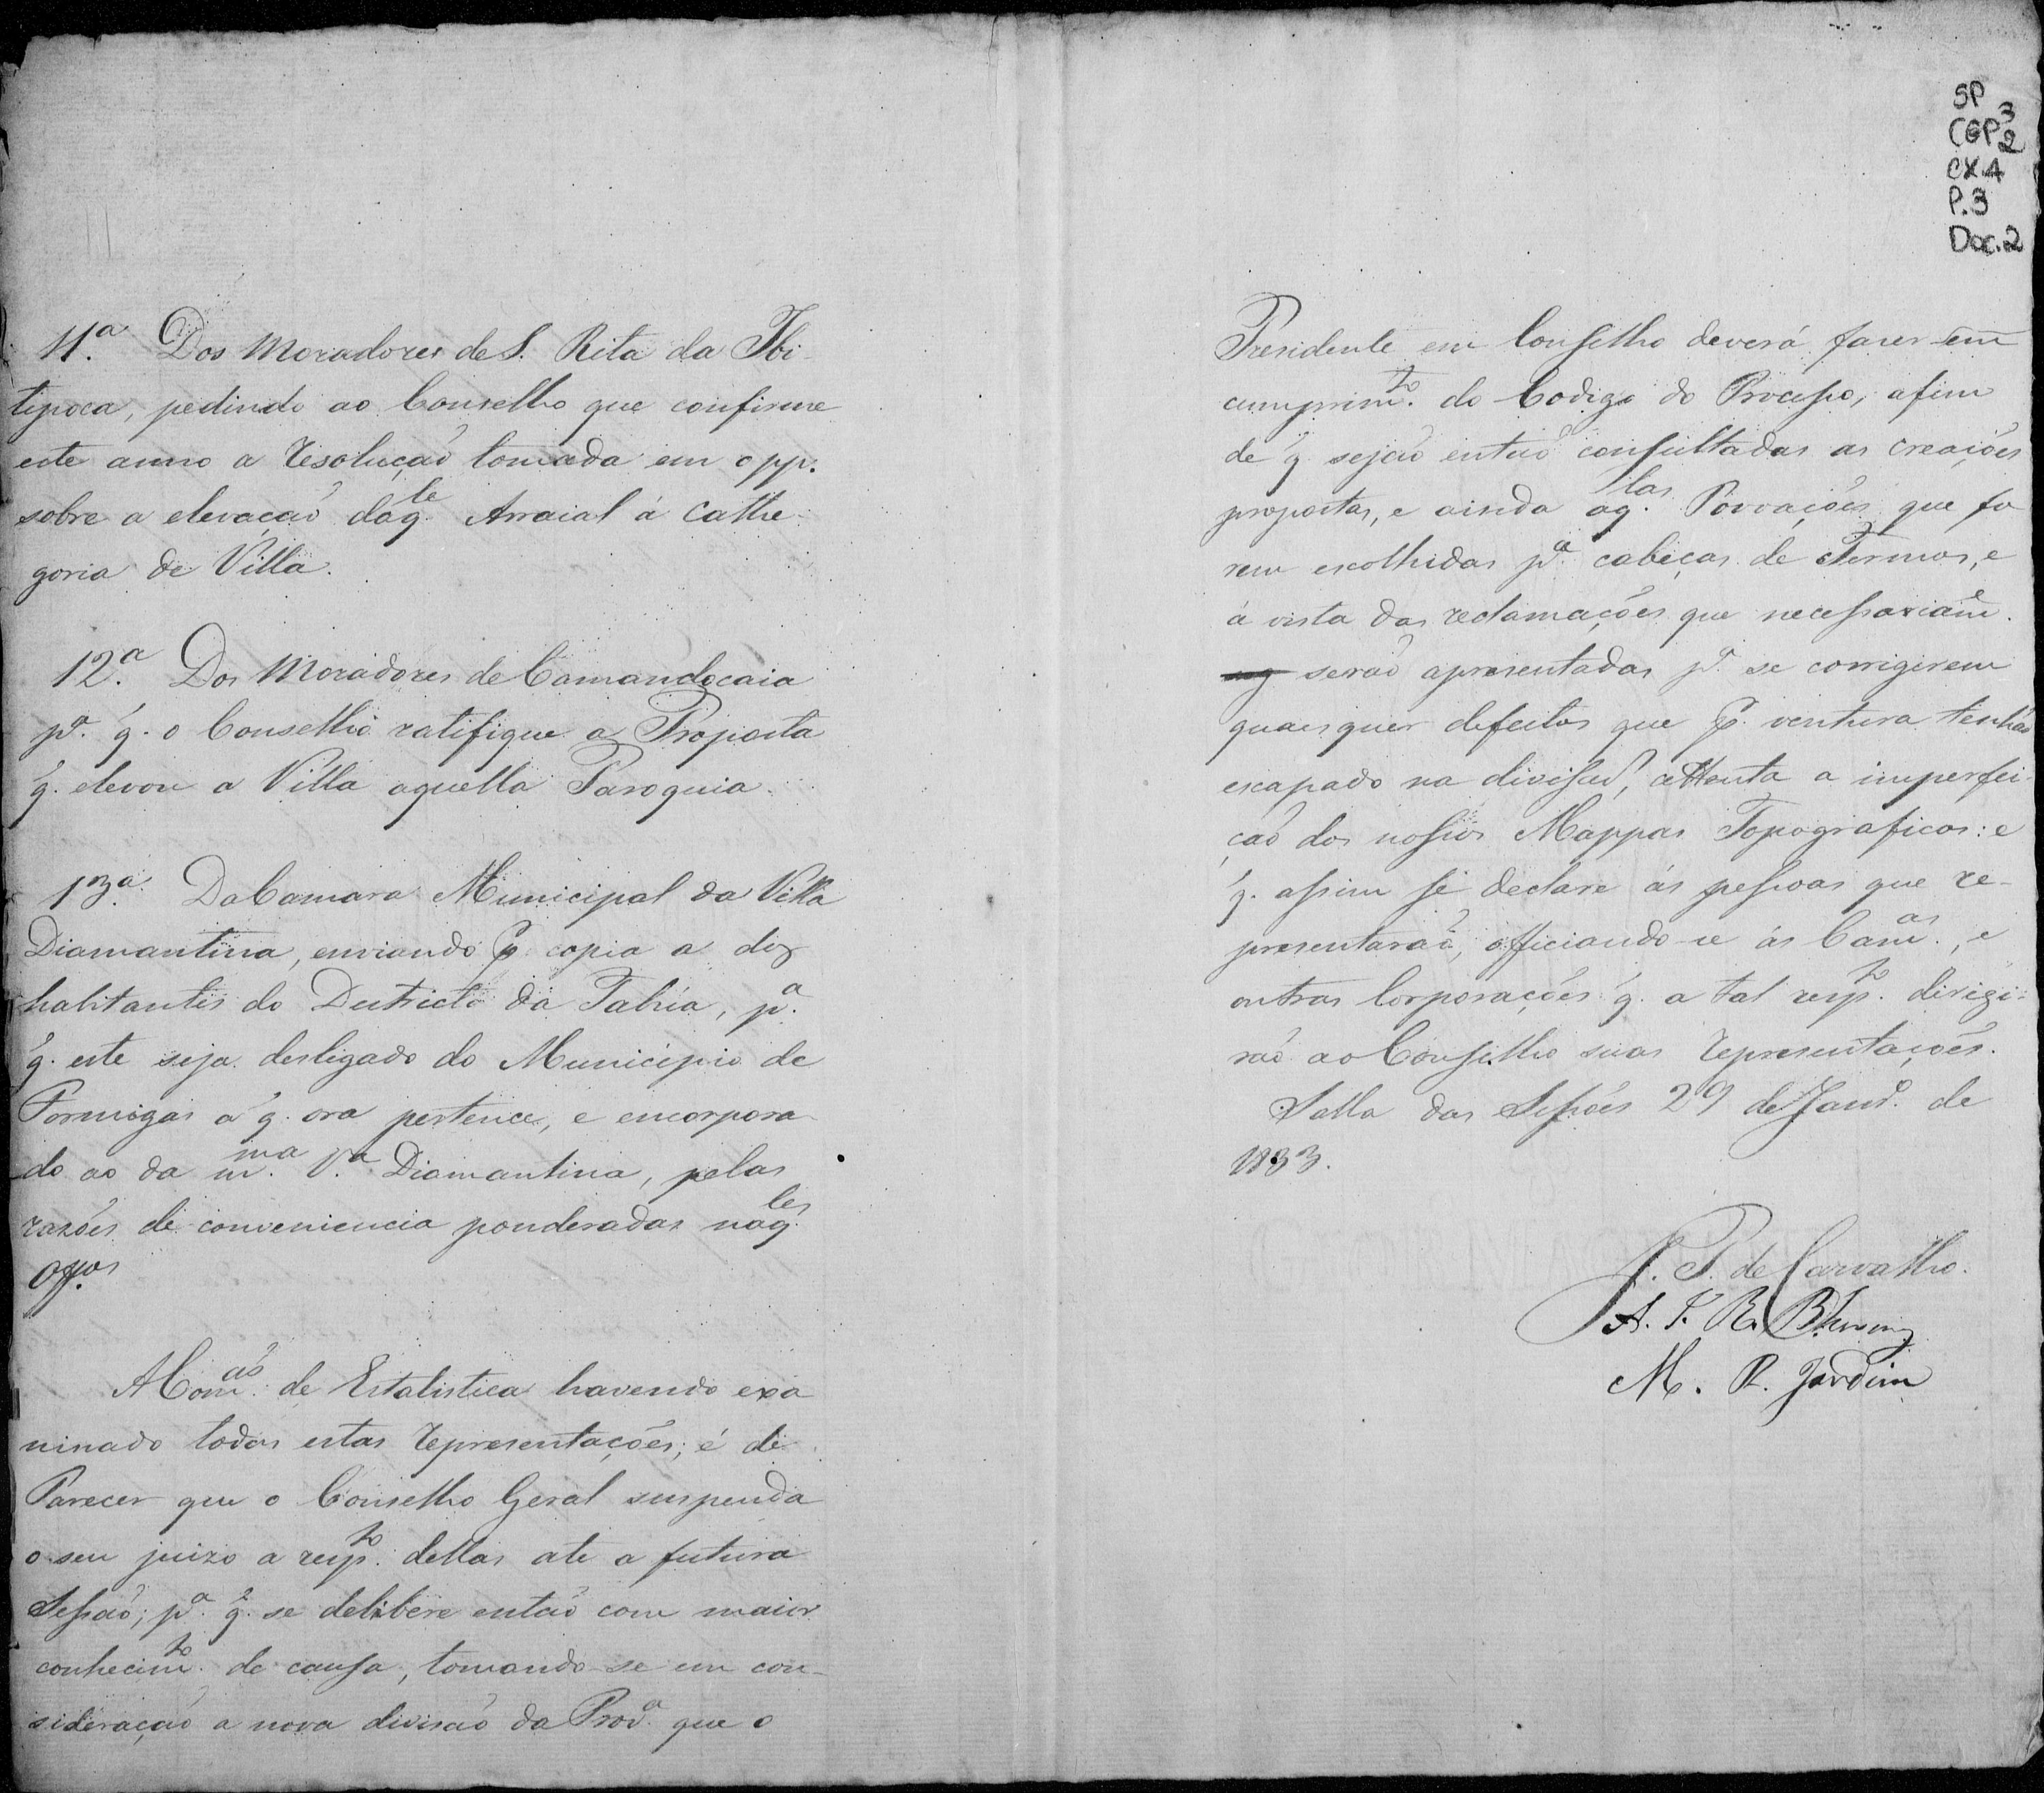 SP
CGP 3
2
CX.4
P.3
Doc.2
11.ª Dos Moradores de S. Rita da Ibi-
tipoca, pedindo ao Conselho que confirme
este anno a resolução tomada em o pp.
sobre a elevação daq.le Arraial á Cathe-
goria de Villa.
12.ª Dos Moradores de Camandocaia
p.ª q. o Conselho ratifique a Proposta
q. elevou a Villa aquella Paroquia.
13.ª Da Camara Municipal da Villa
Diamantina, enviando p. copia a dos
habitantes do Destricto da , p.ª
q. este seja desligado do Municipio de
Formigas a q. ora pertence, e encorpora-
do ao da m.ma V.ª Diamantina, pelas
rasões de conveniencia ponderadas naq.les
Off.os
A Com.ão de Estatistica havendo exa-
minado todas estas representações, é de
Parecer que o Conselho Geral suspenda
o seu juizo a resp.to dellas ate a futura
Sessão; p.ª q. se delibere então com maior
conhecim.to de causa, tomando-se em con-
sideração a nova divisão da Prov.ª que o
Presidente em Conselho deverá fazer em
cumprim.to do Codigo do Processo, afim
de q. sejão então consultadas as creações
propostas, e ainda aq.las Povoações que fo-
rem escolhidas p.ª cabeças de Termos, e
á vista das reclamações que necessariam.e
serão apresentadas p.ª se corrigirem
quaesquer defeitos que p. ventura tenhão
escapado na divisão, attenta a imperfei-
ção dos nossos Mappas Topograficos: e
q. assim se declare ás pessoas que re-
presentarão, officiando-se ás Cam.as, e
outras Corporações q. a tal resp.to dirigi-
rão ao Conselho suas representações.
Salla das Sessões 29 de Janr.o de
1833.
J. P. de Carvalho.
A. J. R. Bhering
M. R. Jardim